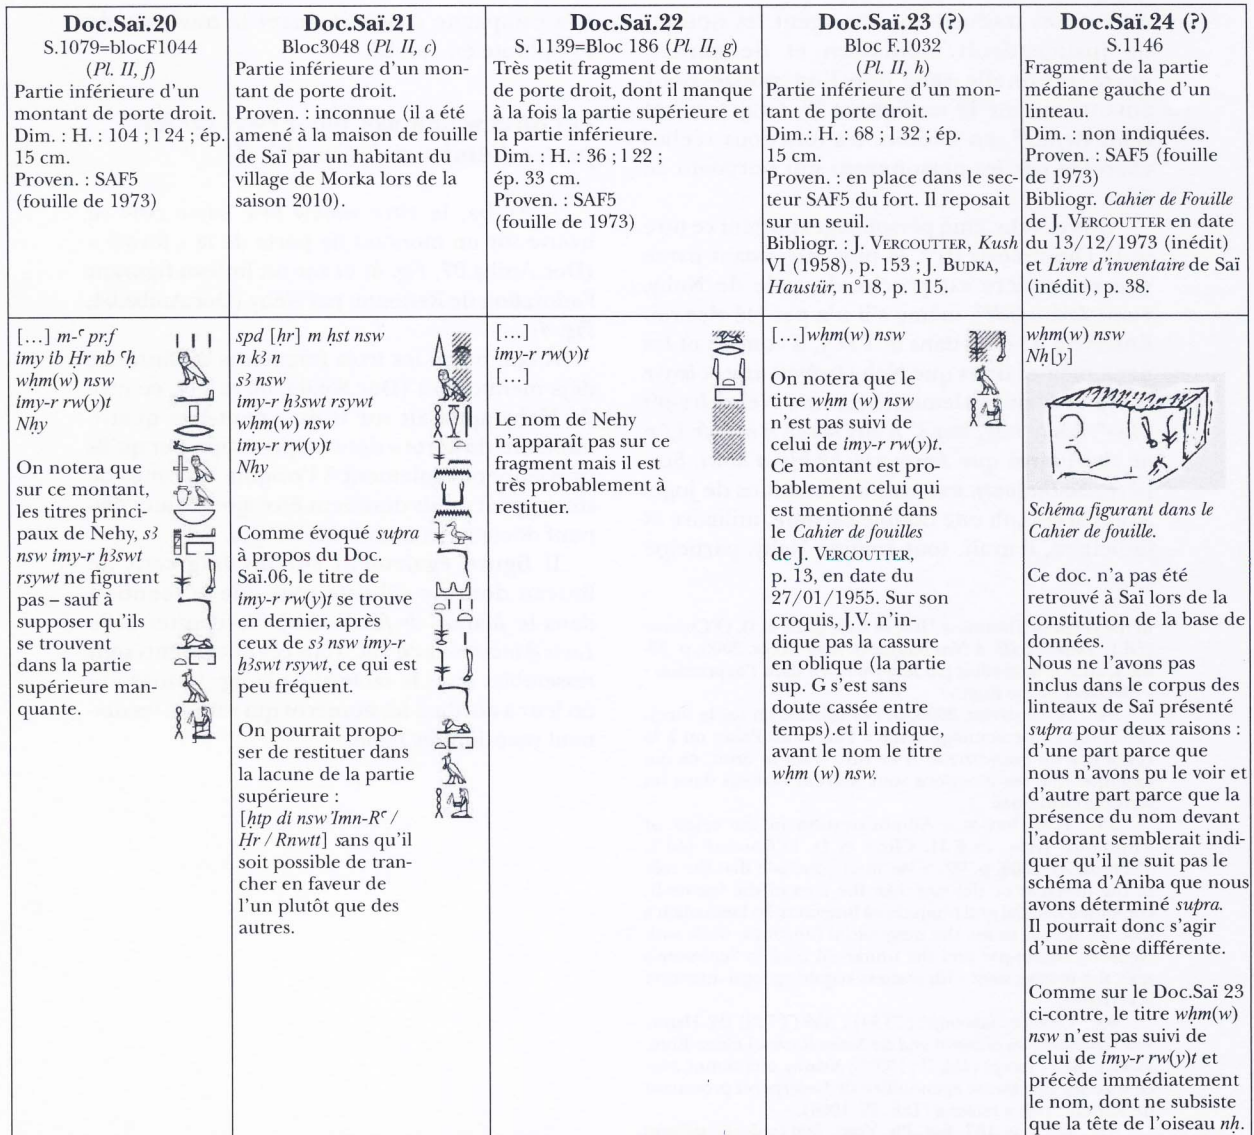 Doc.Saï.20
S.1079=blocF1044
(Pl. II, f)
Partie inférieure d'un
montant de porte droit.
Dim. : H. : 104 ; l 24 ; ép.
15 cm.
Proven. : SAF5
(fouille de 1973)
[…] m-ʿ pr.f
imy ib Ḥr nb ʿḥ
wḥm(w) nsw
imy-r rw(y)t
Nḥy
On notera que
sur ce montant,
les titres princi-
paux de Nehy, s3
nsw imy-r ḫ3swt
rsywt ne figurent
pas – sauf à
supposer qu'ils
se trouvent
dans la partie
supérieure man-
quante.
Doc.Saï.21
Bloc3048 (Pl. II, c)
Partie inférieure d'un mon-
tant de porte droit.
Proven. : inconnue (il a été
amené à la maison de fouille
de Saï par un habitant du
village de Morka lors de la
saison 2010).
spd [ḥr] m ḥst nsw
n k3 n
s3 nsw
imy-r ḫ3swt rsywt
wḥm(w) nsw
imy-r rw(y)t
Nḥy
Comme évoqué supra
à propos du Doc.
Saï.06, le titre de
imy-r rw(y)t se trouve
en dernier, après
ceux de s3 nsw imy-r
ḫ3swt rsywt, ce qui est
peu fréquent.
On pourrait propo-
ser de restituer dans
la lacune de la partie
supérieure :
[ḥtp di nsw Imn-Rʿ /
Ḥr / Rnwtt] sans qu'il
soit possible de tran-
cher en faveur de
l'un plutôt que des
autres.
Doc.Saï.22
S. 1139=Bloc 186 (Pl. II, g)
Très petit fragment de montant
de porte droit, dont il manque
à la fois la partie supérieure et
la partie inférieure.
Dim. : H. : 36 ; l 22 ;
ép. 33 cm.
Proven. : SAF5
(fouille de 1973)
[…]
imy-r rw(y)t
[…]
Le nom de Nehy
n'apparaît pas sur ce
fragment mais il est
très probablement à
restituer.
Doc.Saï.23 (?)
Bloc F.1032
(Pl. II, h)
Partie inférieure d'un mon-
tant de porte droit.
Dim.: H. : 68 ; l 32 ; ép.
15 cm.
Proven. : en place dans le sec-
teur SAF5 du fort. Il reposait
sur un seuil.
Bibliogr. : J. VERCOUTTER, Kush
VI (1958), p. 153 ; J. BUDKA,
Haustür, n°18, p. 115.
[…]wḥm(w) nsw
On notera que le
titre wḥm (w) nsw
n'est pas suivi de
celui de imy-r rw(y)t.
Ce montant est pro-
bablement celui qui
est mentionné dans
le Cahier de fouilles
de J. VERCOUTTER,
p. 13, en date du
27/01/1955. Sur son
croquis, J.V. n'in-
dique pas la cassure
en oblique (la partie
sup. G s'est sans
doute cassée entre
temps).et il indique,
avant le nom le titre
wḥm (w) nsw.
Doc.Saï.24 (?)
S.1146
Fragment de la partie
médiane gauche d'un
linteau.
Dim. : non indiquées.
Proven. : SAF5 (fouille
de 1973)
Bibliogr. Cahier de Fouille
de J. VERCOUTTER en date
du 13/12/1973 (inédit)
et Livre d'inventaire de Saï
(inédit), p. 38.
wḥm(w) nsw
Nḥ[y]
Schéma figurant dans le
Cahier de fouille.
Ce doc. n'a pas été
retrouvé à Saï lors de la
constitution de la base de
données.
Nous ne l'avons pas
inclus dans le corpus des
linteaux de Saï présenté
supra pour deux raisons :
d'une part parce que
nous n'avons pu le voir et
d'autre part parce que la
présence du nom devant
l'adorant semblerait indi-
quer qu'il ne suit pas le
schéma d'Aniba que nous
avons déterminé supra.
Il pourrait donc s'agir
d'une scène différente.
Comme sur le Doc.Saï 23
ci-contre, le titre wḥm(w)
nsw n'est pas suivi de
celui de imy-r rw(y)t et
précède immédiatement
le nom, dont ne subsiste
que la tête de l'oiseau nḥ.